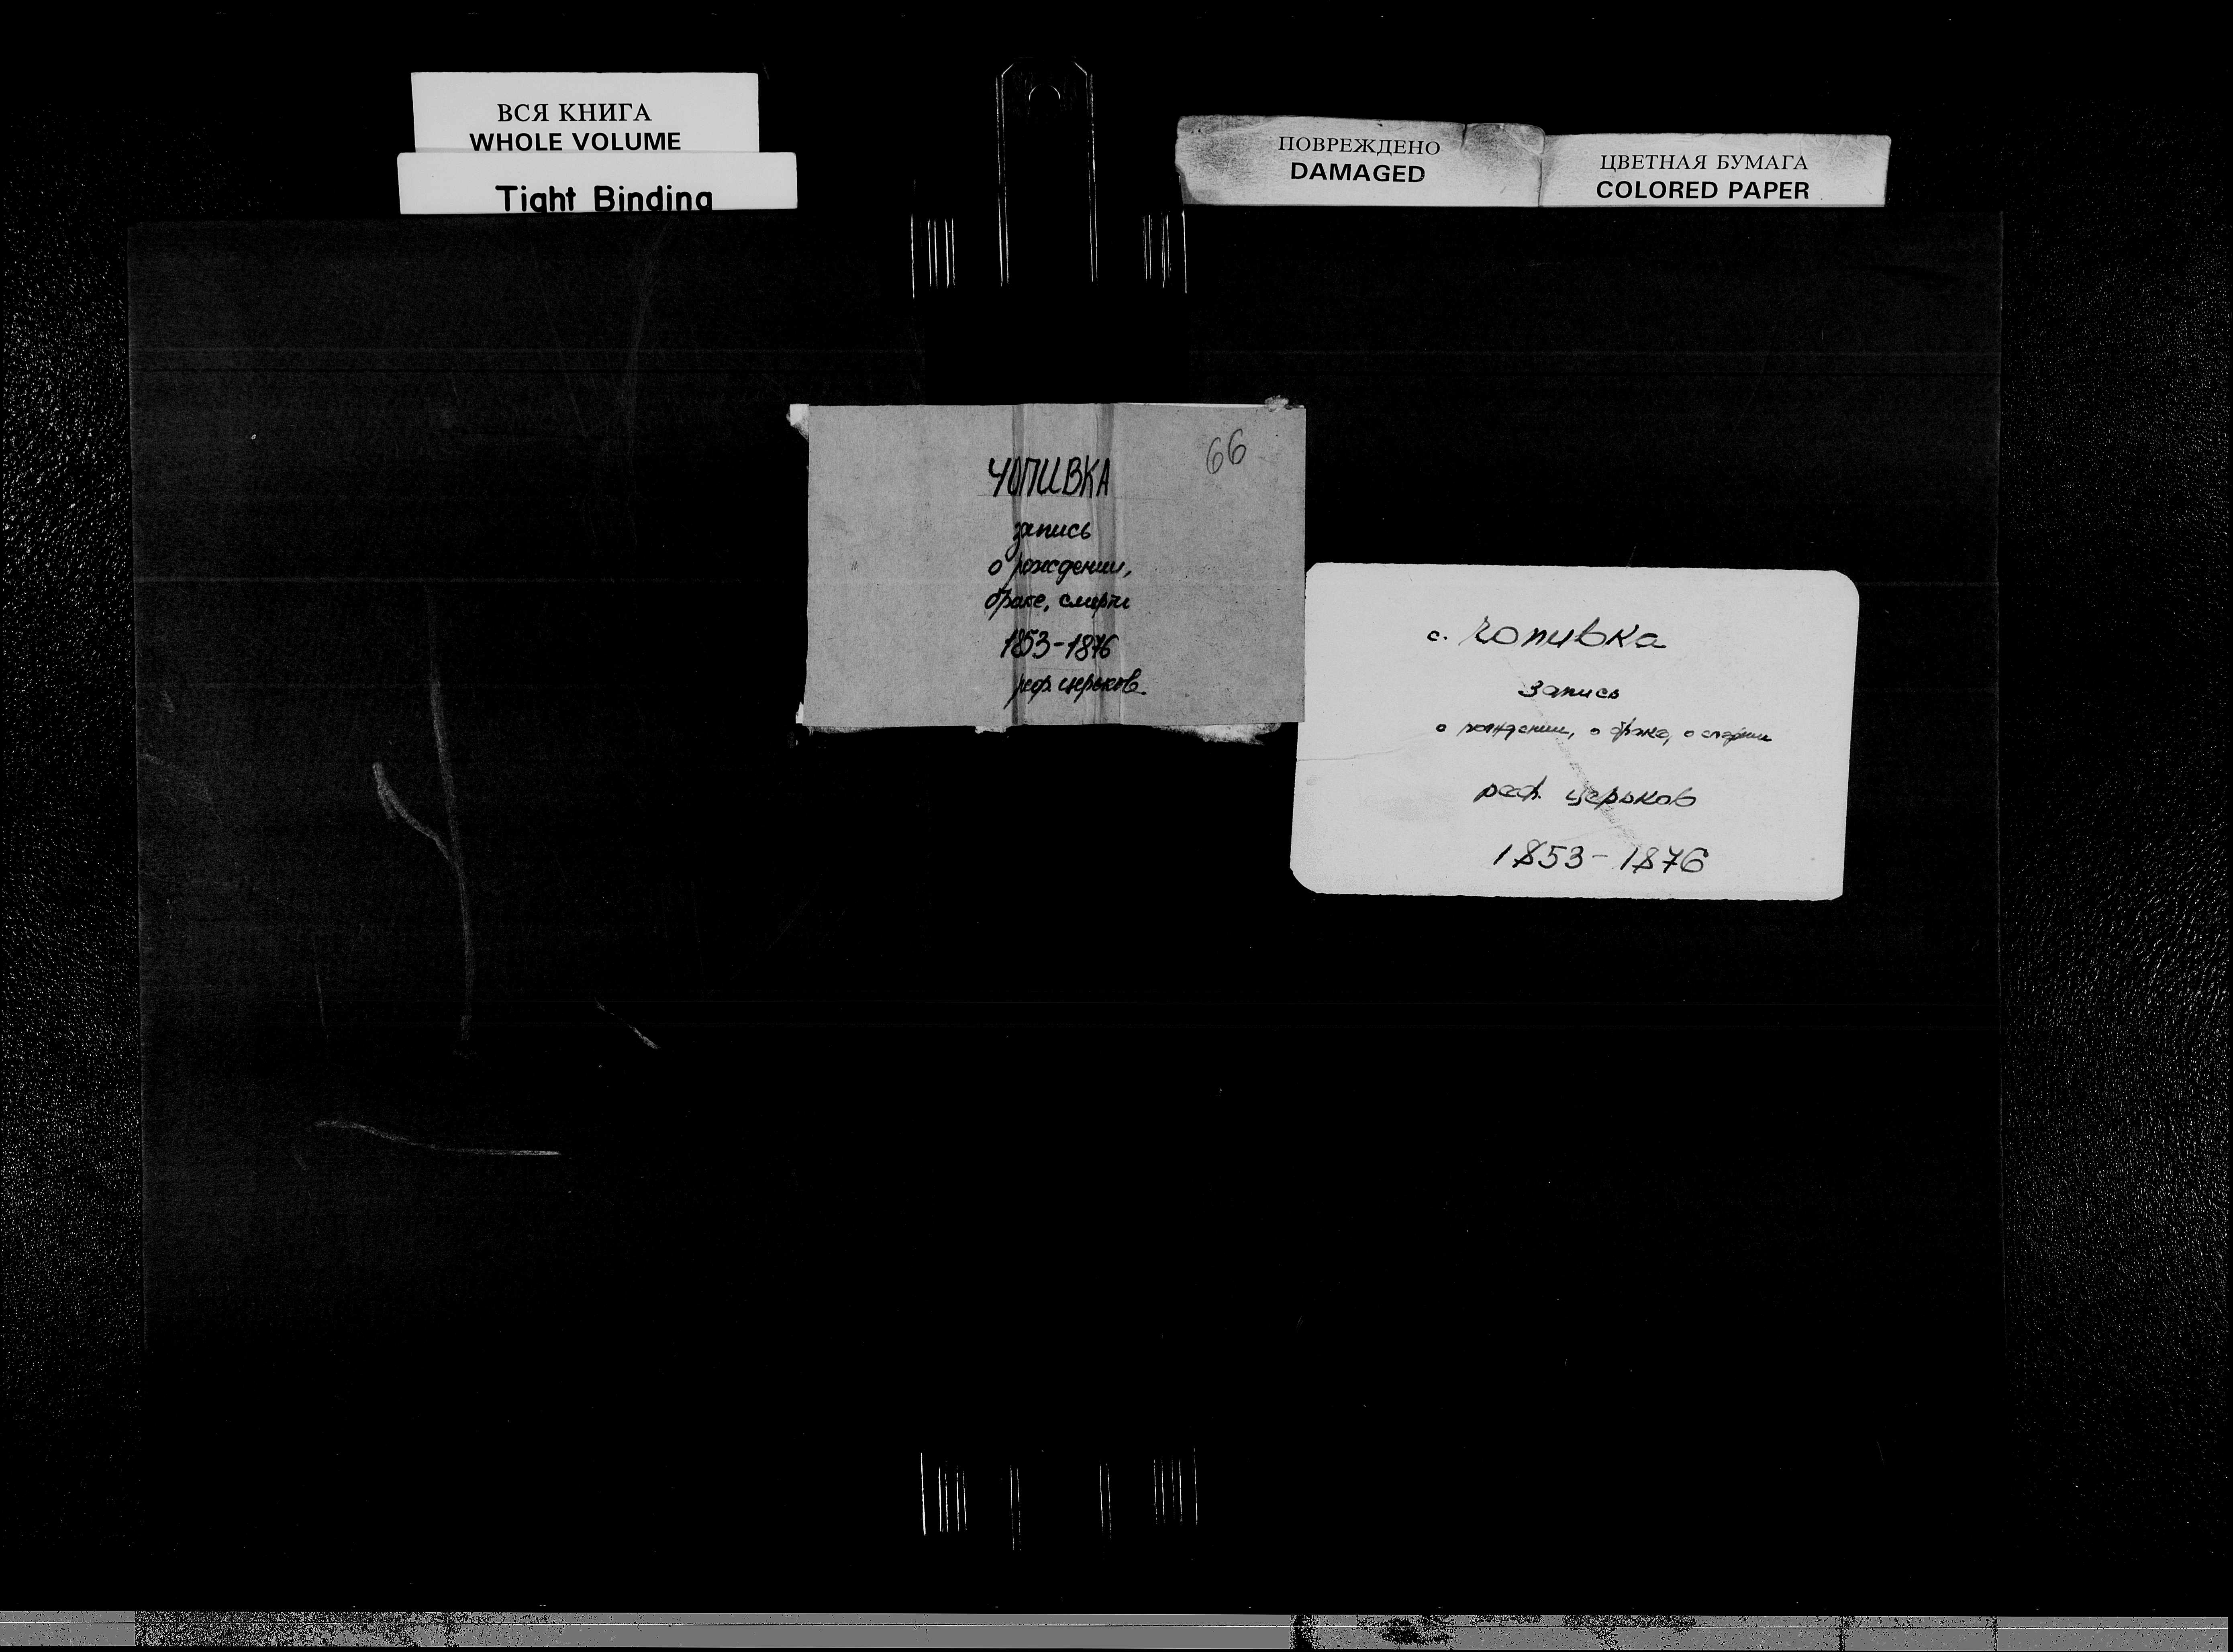 ВСЯ КНИГА
WHOLE VOLUME
Tight Binding
ПОВРЕЖДЕНО
DAMAGED
ЦВЕТНАЯ БУМАГА
COLORED PAPER
66
ЧОПИВКА
запись
о рождении,
браке, смерти
1853-1876
реф. церьков.
с. Чопивка
запись
о рождении, о браке, о смерти
реф. церьков
1853-1876